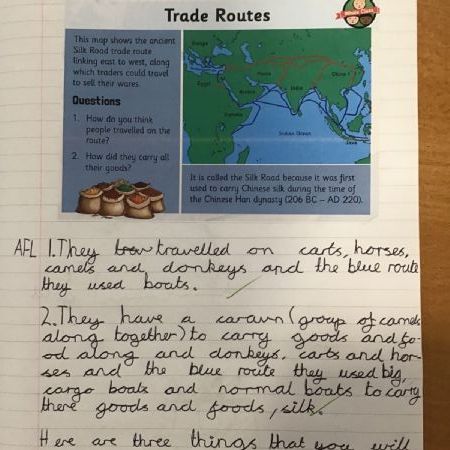 Whole Class
Trade Routes
This map shows the ancient
Silk Road trade route
linking east to west, along
which traders could travel
to sell their wares.
Questions
1. How do you think
people travelled on the
route?
2. How did they carry all
their goods?
Europe
Egypt
Arabia
Somalia
Persia
India
China
Java
Indian Ocean
It is called the Silk Road because it was first
used to carry Chinese silk during the time of
the Chinese Han dynasty (206 BC – AD 220).
AFL 1. They travelled on carts, horses,
camels and donkeys and the blue route
they used boats.
2. They have a caravn (group of camels
along together) to carry goods and fo-
od along and donkeys, carts and hor-
ses and the blue route they used big,
cargo boats and normal boats to carry
there goods and foods, silk.
Here are three things that you will